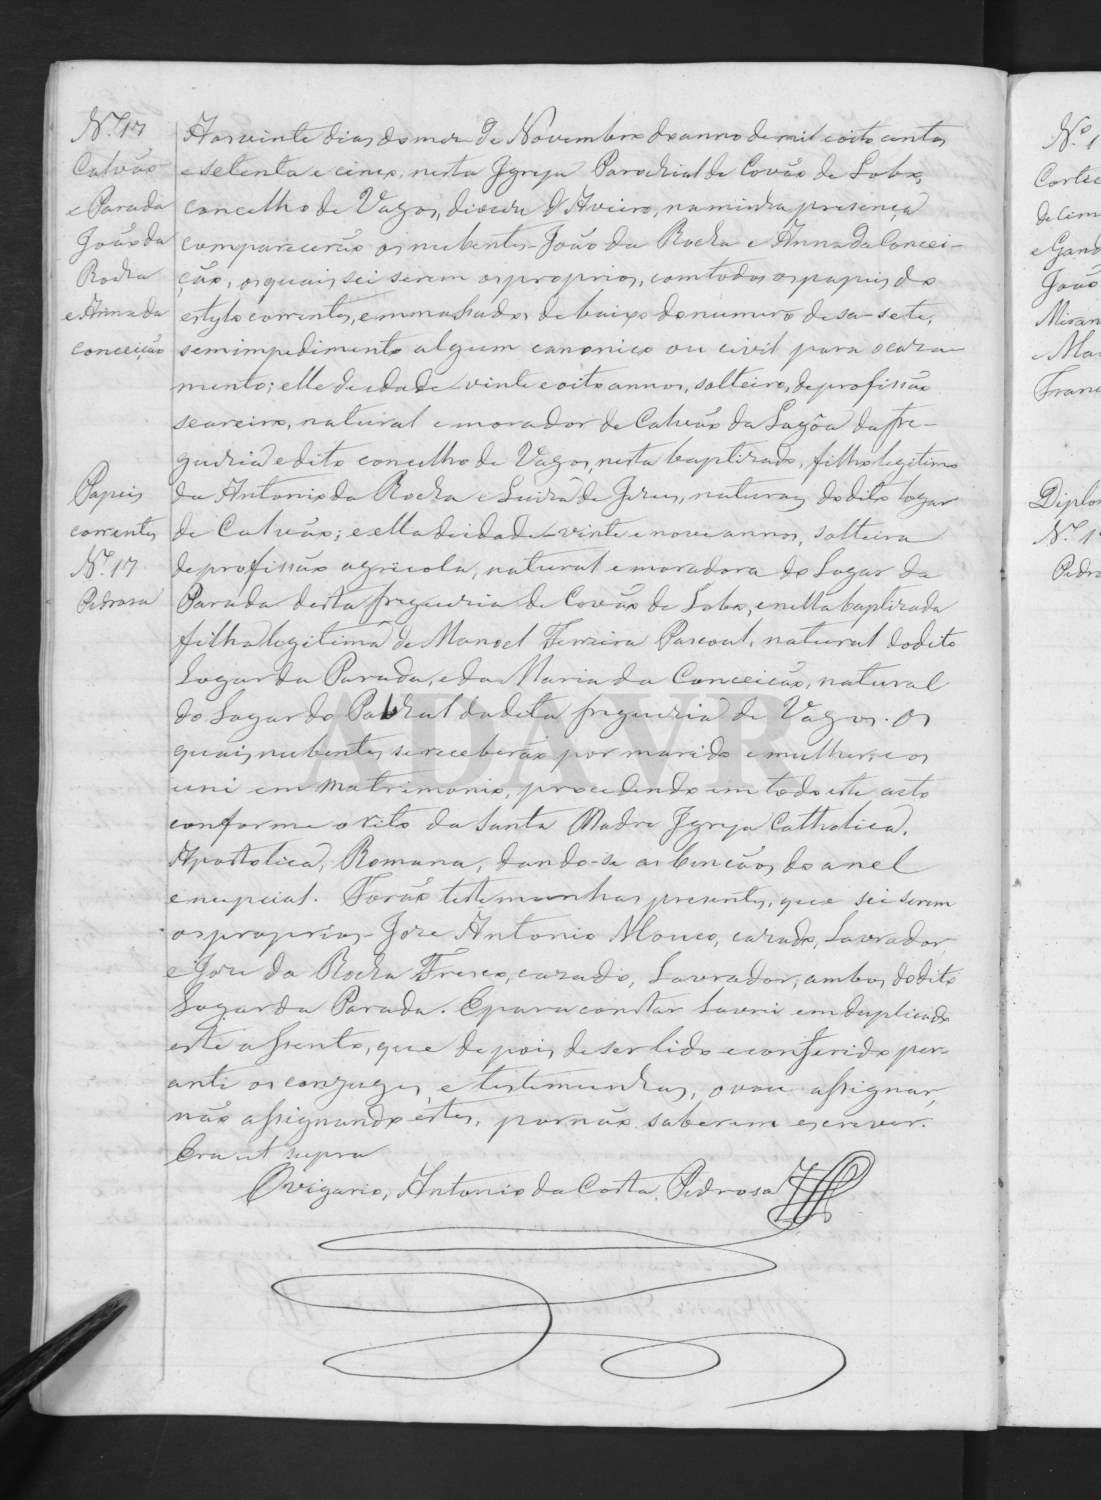 N.º 17
Calvão
e Parada
João da
Rocha
e Anna da
Conceição
Aos vinte dias do mez de Novembro do anno de mil e oito centos
e setenta e cinco, nesta Igreja Parochial de Covão do Lobo,
concelho de Vagos, diocese d'Aveiro, na minha presença
comparecerão os nubentes João da Rocha e Anna da Concei-
ção, os quais sei serem os proprios, com todos os papeis do
estylo correntes, emmassados debaixo do numero desa-sete,
sem impedimento algum canonico ou civil para o caza-
mento; elle de idade vinte e oito annos, solteiro, de profissão
seareiro, natural e morador de Calvão da Lagôa da fre-
guezia e dito concelho de Vagos, nesta baptizado, filho legitimo
de Antonio da Rocha e Luiza de Jesus, naturaes do dito logar
de Calvão; e ella de idade vinte e nove annos, solteira
de profissão agricola, natural e moradora do Lugar da
Parada desta freguezia de Covão do Lobo, e nella baptizada
filha legitima de Manoel Ferreira Pascoal, natural do dito
Lugar da Parada, e da Maria da Conceição, natural
do Lugar do da dita freguezia de Vagos. Os
quais nubentes se receberão por marido e mulher, e os
uni em Matrimonio, procedendo em todo este acto
conforme o rito da Santa Madre Igreja Catholica,
Apostolica, Romana, dando-se as bençãos do anel
e nupcial. Forão testemunhas presentes, que sei serem
os proprios Jose Antonio Mouco, cazado, Lavrador,
e Jose da Rocha Fresco, cazado, Lavrador, ambos do dito
Lugar da Parada. E para constar lavrei em duplicado
este assento, que depois de ser lido e conferido per-
ante os conjuges, e testemunhas, o vou assignar,
não assignando estes, por não saberem escrever.
Era ut supra
O vigario, Antonio da Costa Pedrosa
Papeis
correntes
N.º 17
Pedrosa
ADAVR
N.º 1
Corti
de Cim
e Gand
João
Miran
e Ma
Fran
Diplo
N.º 1
Pedro